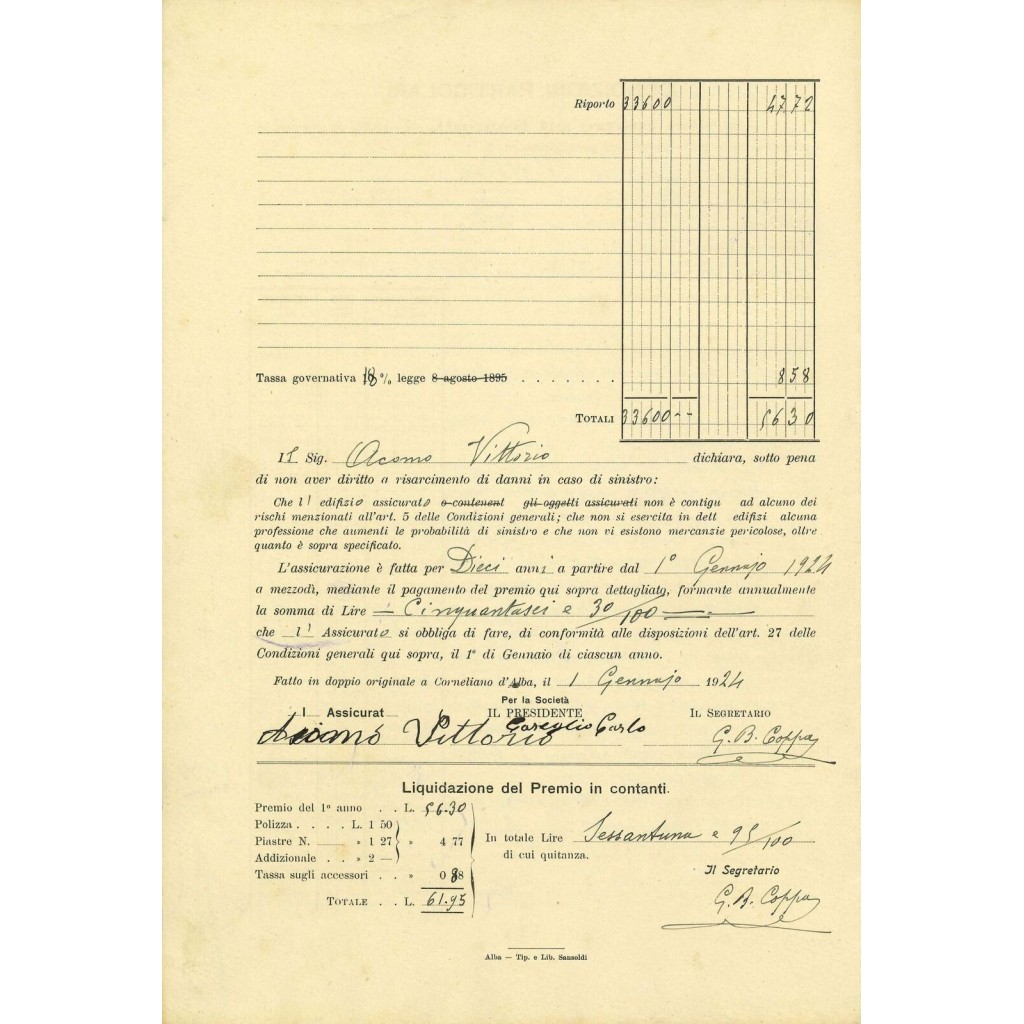 Riporto 33600 47 72
Tassa governativa 18 % legge 8 agosto 1895 . . . . . . . 8 58
TOTALI 33600 -- 56 30
Il Sig. Acomo Vittorio dichiara, sotto pena
di non aver diritto a risarcimento di danni in caso di sinistro:
Che l' edifizio assicurato o contenent gli oggetti assicurati non è contigu ad alcuno dei
rischi menzionati all'art. 5 delle Condizioni generali; che non si esercita in dett edifizi alcuna
professione che aumenti le probabilità di sinistro e che non vi esistono mercanzie pericolose, oltre
quanto è sopra specificato.
L'assicurazione è fatta per Dieci anni a partire dal 1° Gennajo 1924
a mezzodì, mediante il pagamento del premio qui sopra dettagliato, formante annualmente
la somma di Lire — Cinquantasei e 30/100 —
che l' Assicurato si obbliga di fare, di conformità alle disposizioni dell'art. 27 delle
Condizioni generali qui sopra, il 1° di Gennaio di ciascun anno.
Fatto in doppio originale a Corneliano d'Alba, il 1 Gennajo 1924
Per la Società
I Assicurat IL PRESIDENTE IL SEGRETARIO
Vittorio Carlo G. B. Coppa
Liquidazione del Premio in contanti.
Premio del 1° anno . . L. 56.30
Polizza . . . . L. 1 50
Piastre N. » 1 27 » 4 77
Addizionale . . » 2 —
Tassa sugli accessori . . » 0 88
TOTALE . . L. 61.95
In totale Lire Sessantuna e 95/100
di cui quitanza.
Il Segretario
G. B. Coppa
Alba — Tip. e Lib. Sansoldi